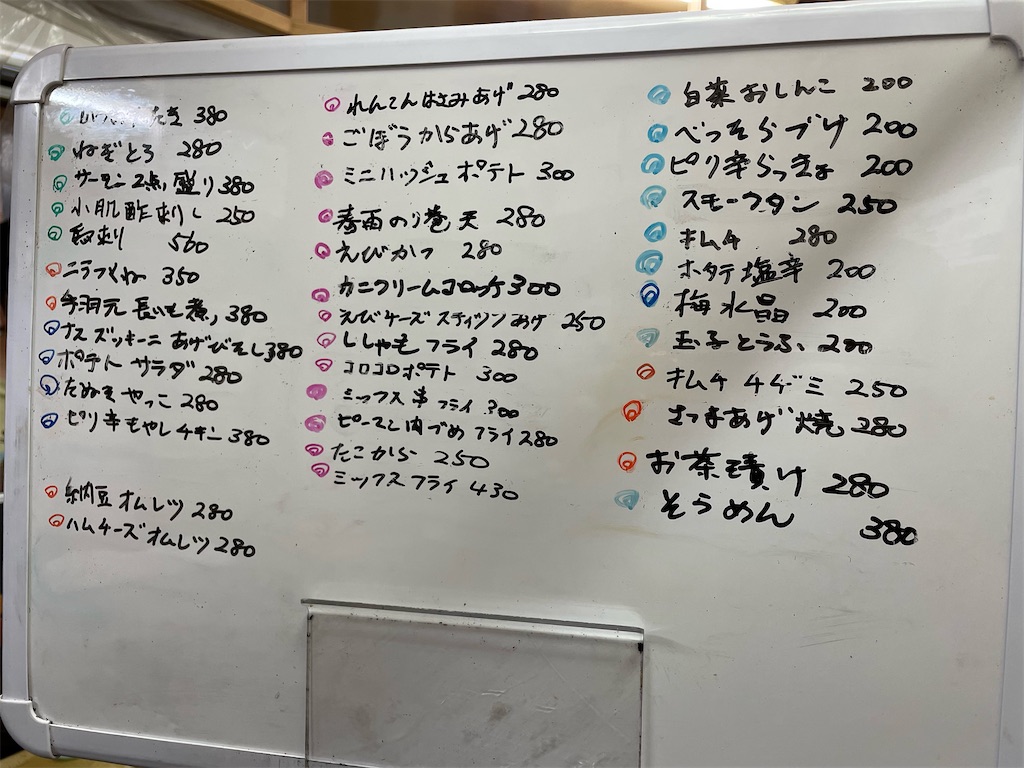 380
ねぎとろ 280
サーモン2点盛り 380
小肌酢刺し 250
刺 560
ニラつくね 350
手羽元 長いも煮 380
ナス ズッキーニ あげびたし 380
ポテト サラダ 280
たぬきやっこ 280
ピリ辛もやしチキン 380
納豆オムレツ 280
ハムチーズオムレツ 280
れんこんはさみあげ 280
ごぼうからあげ 280
ミニハッシュポテト 300
春雨のり巻天 280
えびかつ 280
カニクリームコロッケ 300
えびチーズスティックあげ 250
ししゃもフライ 280
コロコロポテト 300
ミックス串フライ 300
ピーマン肉づめフライ 280
たこから 250
ミックスフライ 430
白菜おしんこ 200
べったらづけ 200
ピリ辛らっきょ 200
スモークタン 250
キムチ 280
ホタテ塩辛 200
梅水晶 200
玉子とうふ 200
キムチ チヂミ 250
さつまあげ焼 280
お茶漬け 280
そうめん 380